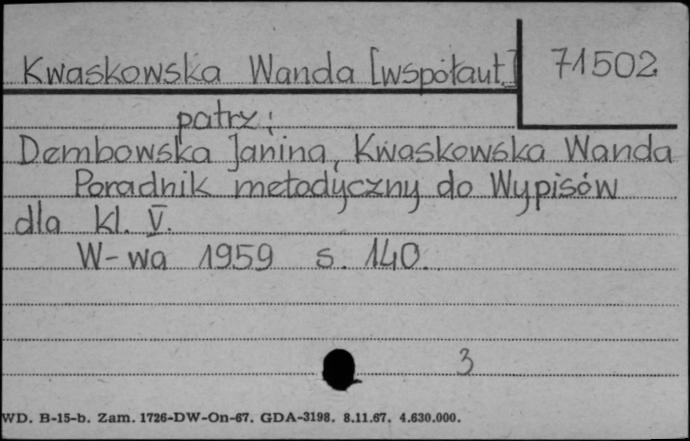 Kwaskowska Wanda [współaut.] 71502
patrz:
Dembowska Janina, Kwaskowska Wanda
Poradnik metodyczny do Wypisów
dla kl. V.
W-wa 1959 s. 140.
3
WD. B-15-b. Zam. 1726-DW-On-67. GDA-3198. 8.11.67. 4.630.000.